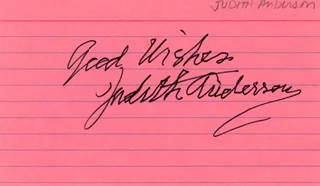 JUDITH ANDERSON
Good Wishes
Judith Anderson